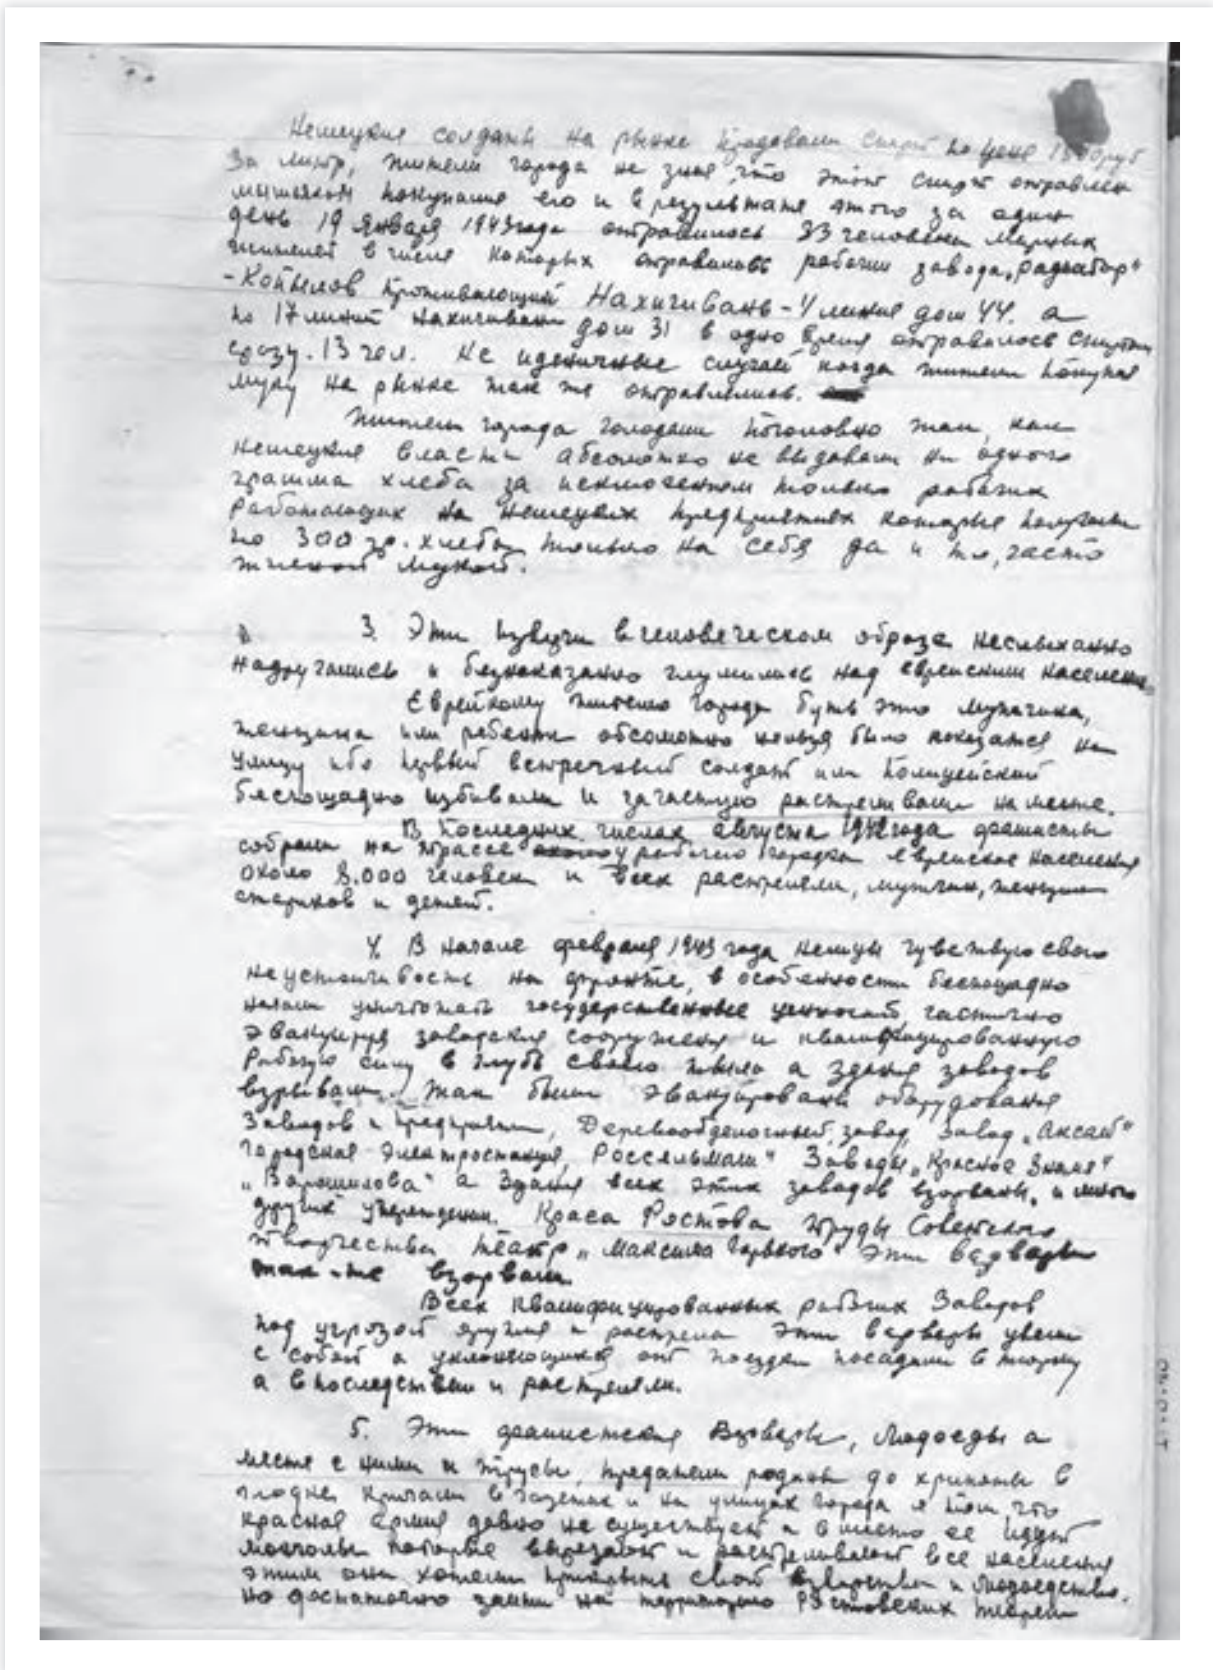 Немецкие солдаты на рынке продавали спирт по цене руб
за литр, жители города не зная, что этот спирт отравлен
мышьяком покупали его и в результате этого за один
день 19 января 1943 года отравилось 33 человека мирных
жителей в числе которых отравились рабочий завода „радиатор“
- Копылов проживающий Нахичивань - 4 линия дом 44. а
по 17 линий нахичивани дом 31 в одно время отравилось спиртом
сразу. 13 чел. Не единичные случай когда жители покупая
муку на рынке так же отравлялись.
Жители города голодали поголовно так, как
немецкие власти абсолютно не выдавали ни одного
грамма хлеба за исключением только рабочих
работающих на немецких предприятиях которые получали
по 300 гр. хлеба только на себя да и то, часто
мукой.
3. Эти изверги в человеческом образе неслыханно
надругались и безнаказанно глумились над еврейским населением
Еврейкому жителю города будь это мужчина,
женщина или ребенок абсолютно нельзя было показатся на
улицу ибо первый встречный солдат или полицейский
беспощадно избивали и зачастую растреливали на месте.
В последних числах августа 1942 года фашисты
собрали на трассе у рабочего городка еврейское население
около 8.000 человек и всех растреляли, мужчин, женщин
стариков и детей.
4. В начале февраля 1943 года немцы чувствую свою
неустоичивость на фронте, в особенности беспощадно
начали уничтожать государственные ценностей частично
эвакуируя заводские сооружения и квалифицированную
рабочую силу в глубь своего тыла а здания заводов
взрывали. Так были эвакуированы оборудования
заводов и предприятии, Деревообделочный завод, завод „Аксай“
городская электростанция, Россельмаш“ Заводы „Красное Знамя“
„Ворошилова“ а здания всех этих заводов взорваны. и много
других учреждении. Краса Ростова труды Советского
творчества театр „Максима Горького“ эти варвары
так-же взорвали.
Всех квалифицированных рабочих заводов
под угрозой оружия и растрела эти варвары увели
с собой а уклонющихся от поездки посадили в тюрму
а в последствии и растреляли.
5. Эти фашистские варвары, людоеды а
месте с ними и трусы, предатели родины до хрипоты в
глодке кричали в газетах и на улицах города о том, что
красная армия давно не существует а в место ее идут
монголы которые вырезают и растреливают все население
этим они хотели прикрыть свой зверства и людоедство.
но достаточно зайти на территорию Ростовских тюрем